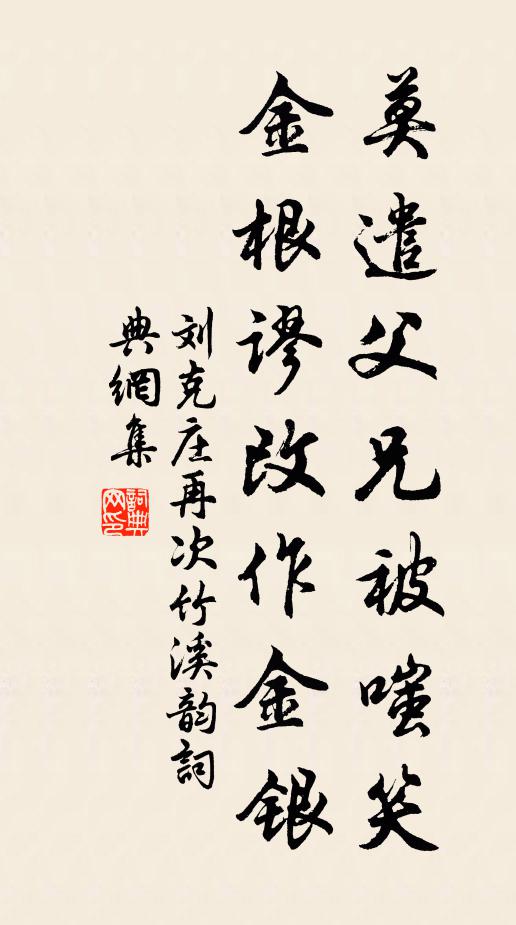 莫遣父兄被嗤笑
金根谬改作金银
刘克庄再次竹溪韵詞
典網集
詞典
网印